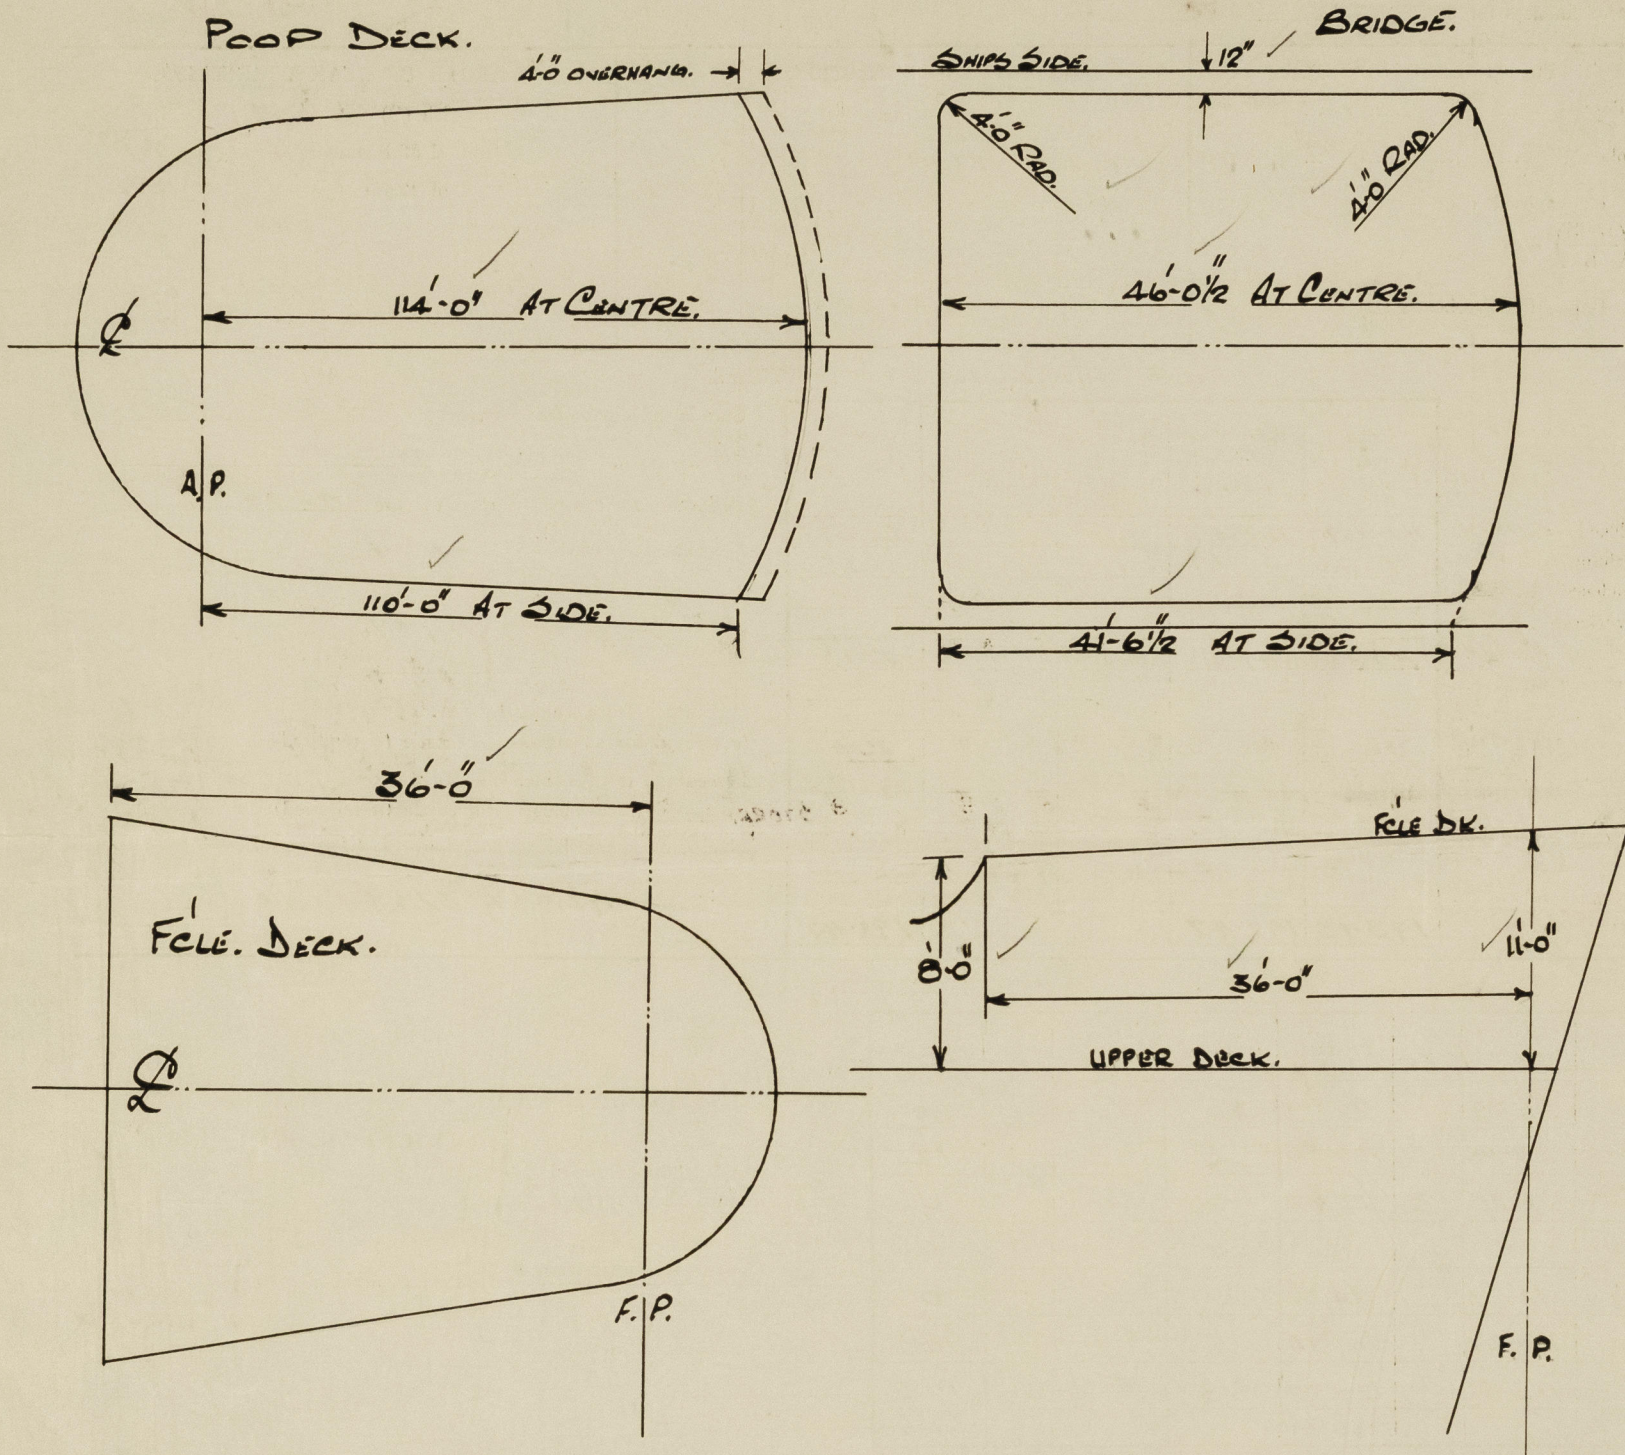 POOP DECK.
4'-0" OVERHANG.
114'-0" AT CENTRE.
℄
A.P.
110'-0" AT SIDE.
BRIDGE.
SHIPS SIDE.
12"
4'-0" RAD.
4'-0" RAD.
46'-0½" AT CENTRE.
41'-6½" AT SIDE.
36'-0"
F'CLE. DECK.
℄
F.P.
F'CLE DK.
8'-0"
11'-0"
36'-0"
UPPER DECK.
F.P.